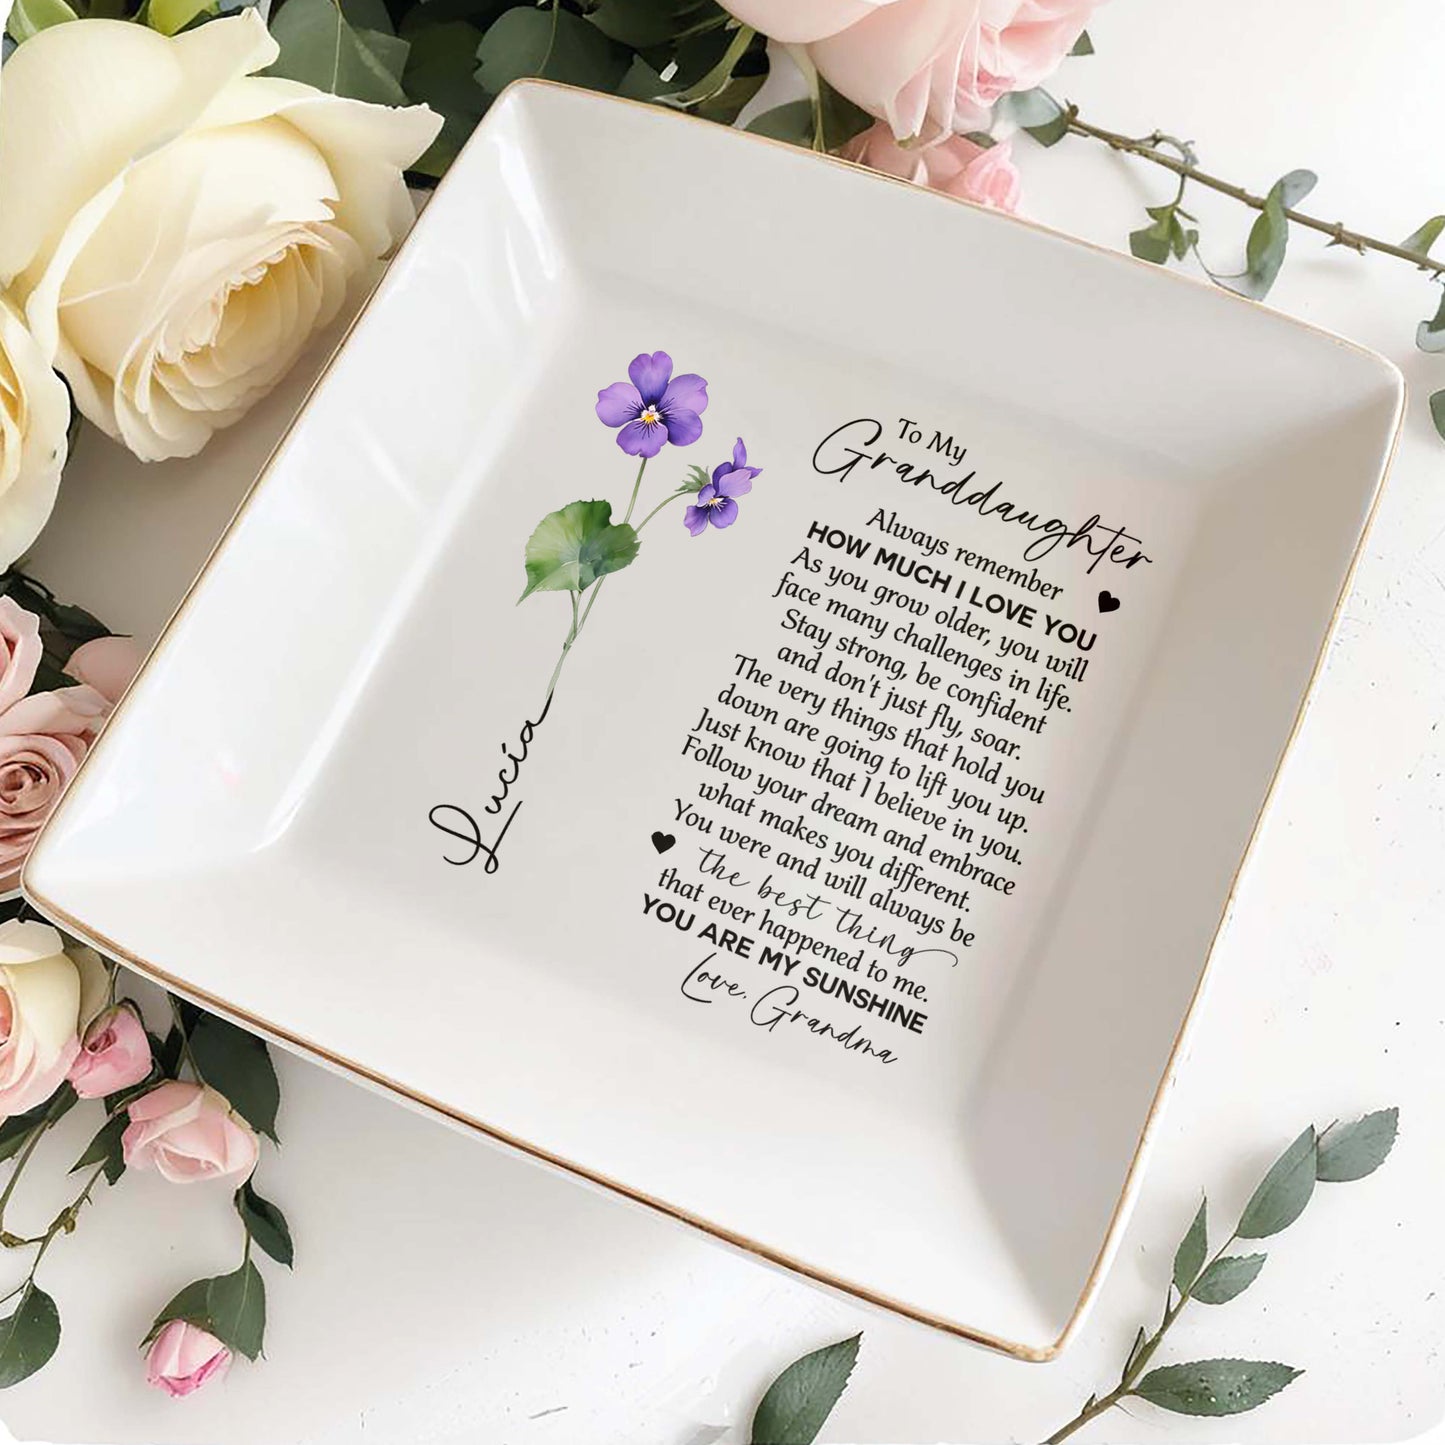 Lucía
To My
Granddaughter
Always remember
HOW MUCH I LOVE YOU
As you grow older, you will
face many challenges in life.
Stay strong, be confident
and don't just fly, soar.
The very things that hold you
down are going to lift you up.
Just know that I believe in you.
Follow your dream and embrace
what makes you different.
You were and will always be
the best thing
that ever happened to me.
YOU ARE MY SUNSHINE
Love, Grandma